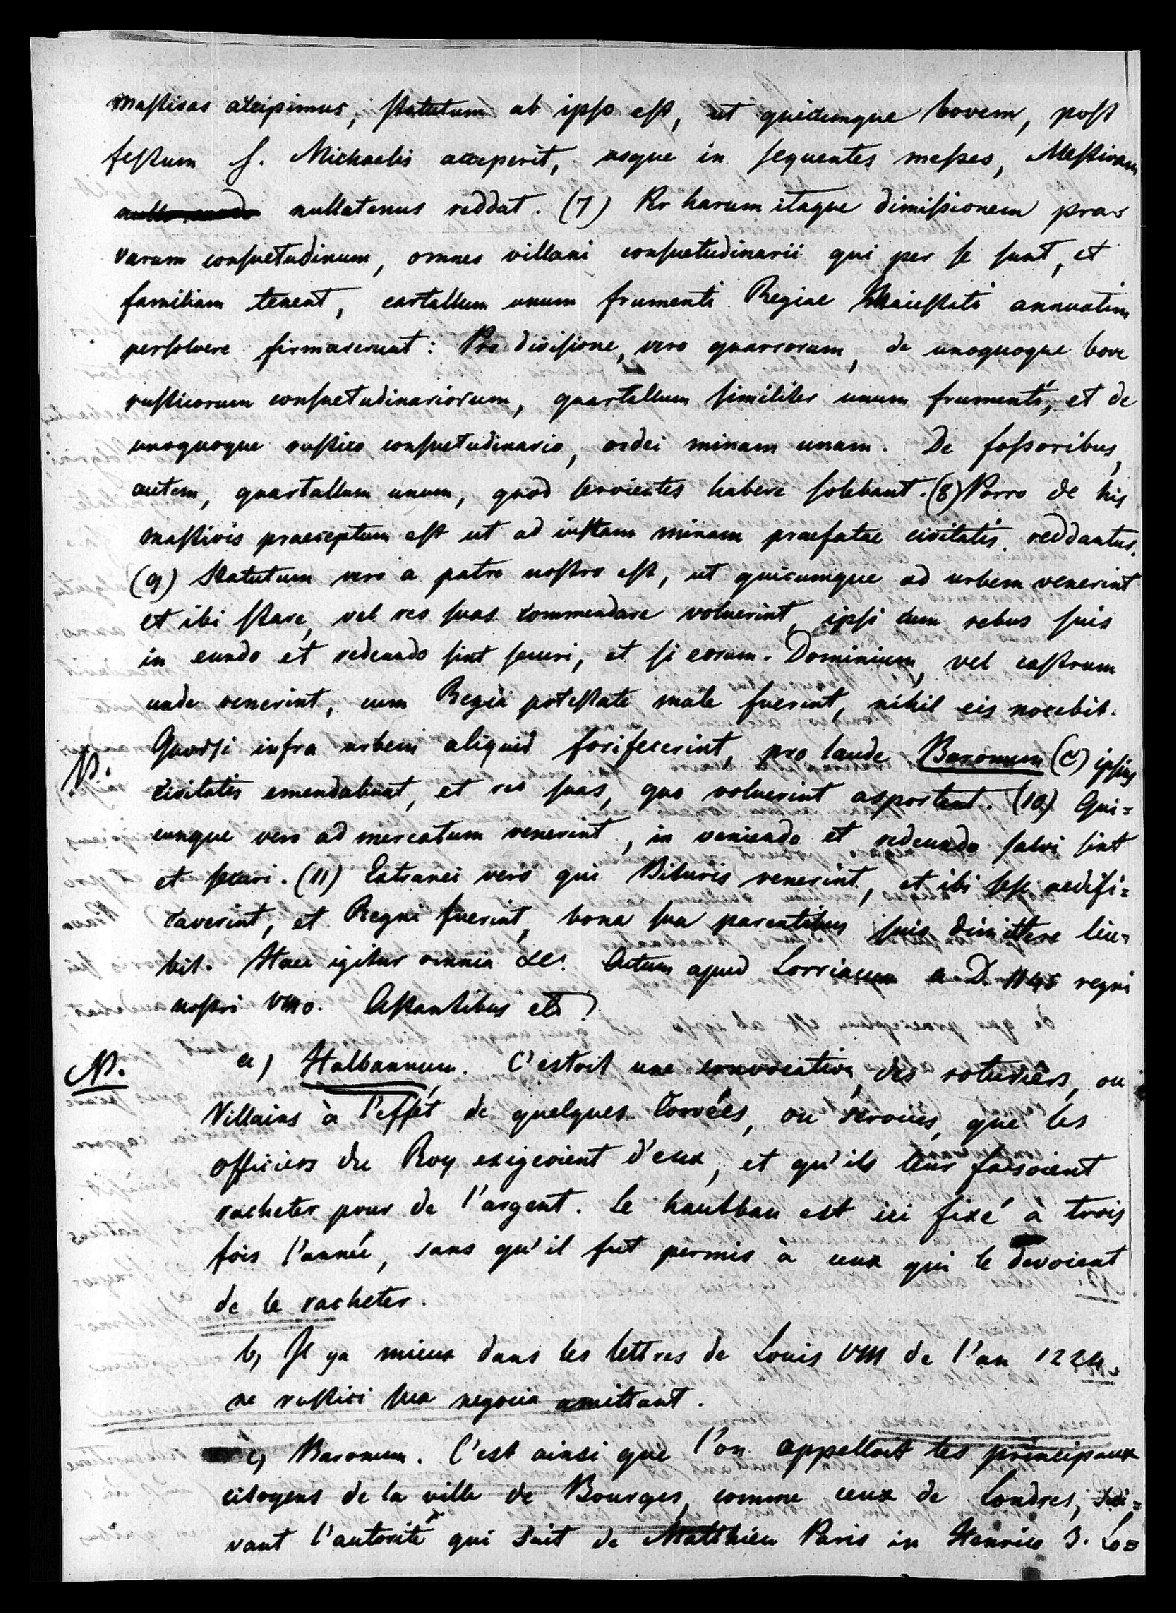 mastivas accipimus, statutum ab ipso est, ut quicumque bovem, post
festum S. Michaelis acceperit, usque in sequentes messes, Mestivam
nullatenus reddat. (7) Per harum itaque dimissionem pra-
varum consuetudinum, omnes villani consuetudinarii qui per se sunt, et
familiam tenent, cartallum unum frumenti Regiae Maiestati annuatim
persolvere firmaverunt: Pro divisione, vero quarrorum, de unoquoque bove
rusticorum consuetudinariorum, quartallum similiter unum frumenti, et de
unoquoque rustico consuetudinario, ordei minam unam. De fossoribus,
autem, quartallum unum, quod servientes habere solebant. (8) Porro de his
mastivis praeceptum est ut ad iustam minam praefatae civitatis reddantur.
(9) Statutum vero a patre nostro est, ut quicumque ad urbem venerint
et ibi stare, vel res suas commendare voluerint, ipsi cum rebus suis
in eundo et redeundo sint securi, et si eorum Dominium, vel castrum
unde venerint, cum Regia potestate male fuerint, nihil eis nocebit.
N. Quodsi infra urbem aliquid forifecerint, pro laude Baronum (c) ipsius
civitatis emendabunt, et res suas, quo voluerint asportent. (10) Qui=
cunque vero ad mercatum venerint, in veniendo et redeundo salvi sint
et securi. (11) Extranei vero qui Bituris venerint, et ibi sese aedifi=
caverint, et Regni fuerint, bona sua parentibus suis dimittere lice-
bit. Haec igitur omnia &c. Actum apud Lorriacum a D. 1145 regni
nostri VIIIo. Astantibus etc)
N. a) Halbannum. C'estoit une convocation, des roturiers, ou
Villains à l'effét de quelques Corvées, ou servies, que les
officiers du Roy exigeoient d'eux, et qu'ils leur faisoient
racheter pour de l'argent. Le hautban est ici fixé à trois
fois l'année, sans qu'il fut permis à ceux qui le devoient
de le racheter.
b) Il ya mieux dans les lettres de Louis VIII de l'an 1224.
ne rustici sua negocia amittant.
c) Baronum. C'est ainsi que l'on appelloit les principaux
citoyens de la ville de Bourges, comme ceux de Londres, sui=
vant l'autorité qui suit de Matthieu Paris in Henrico 3. Lo=